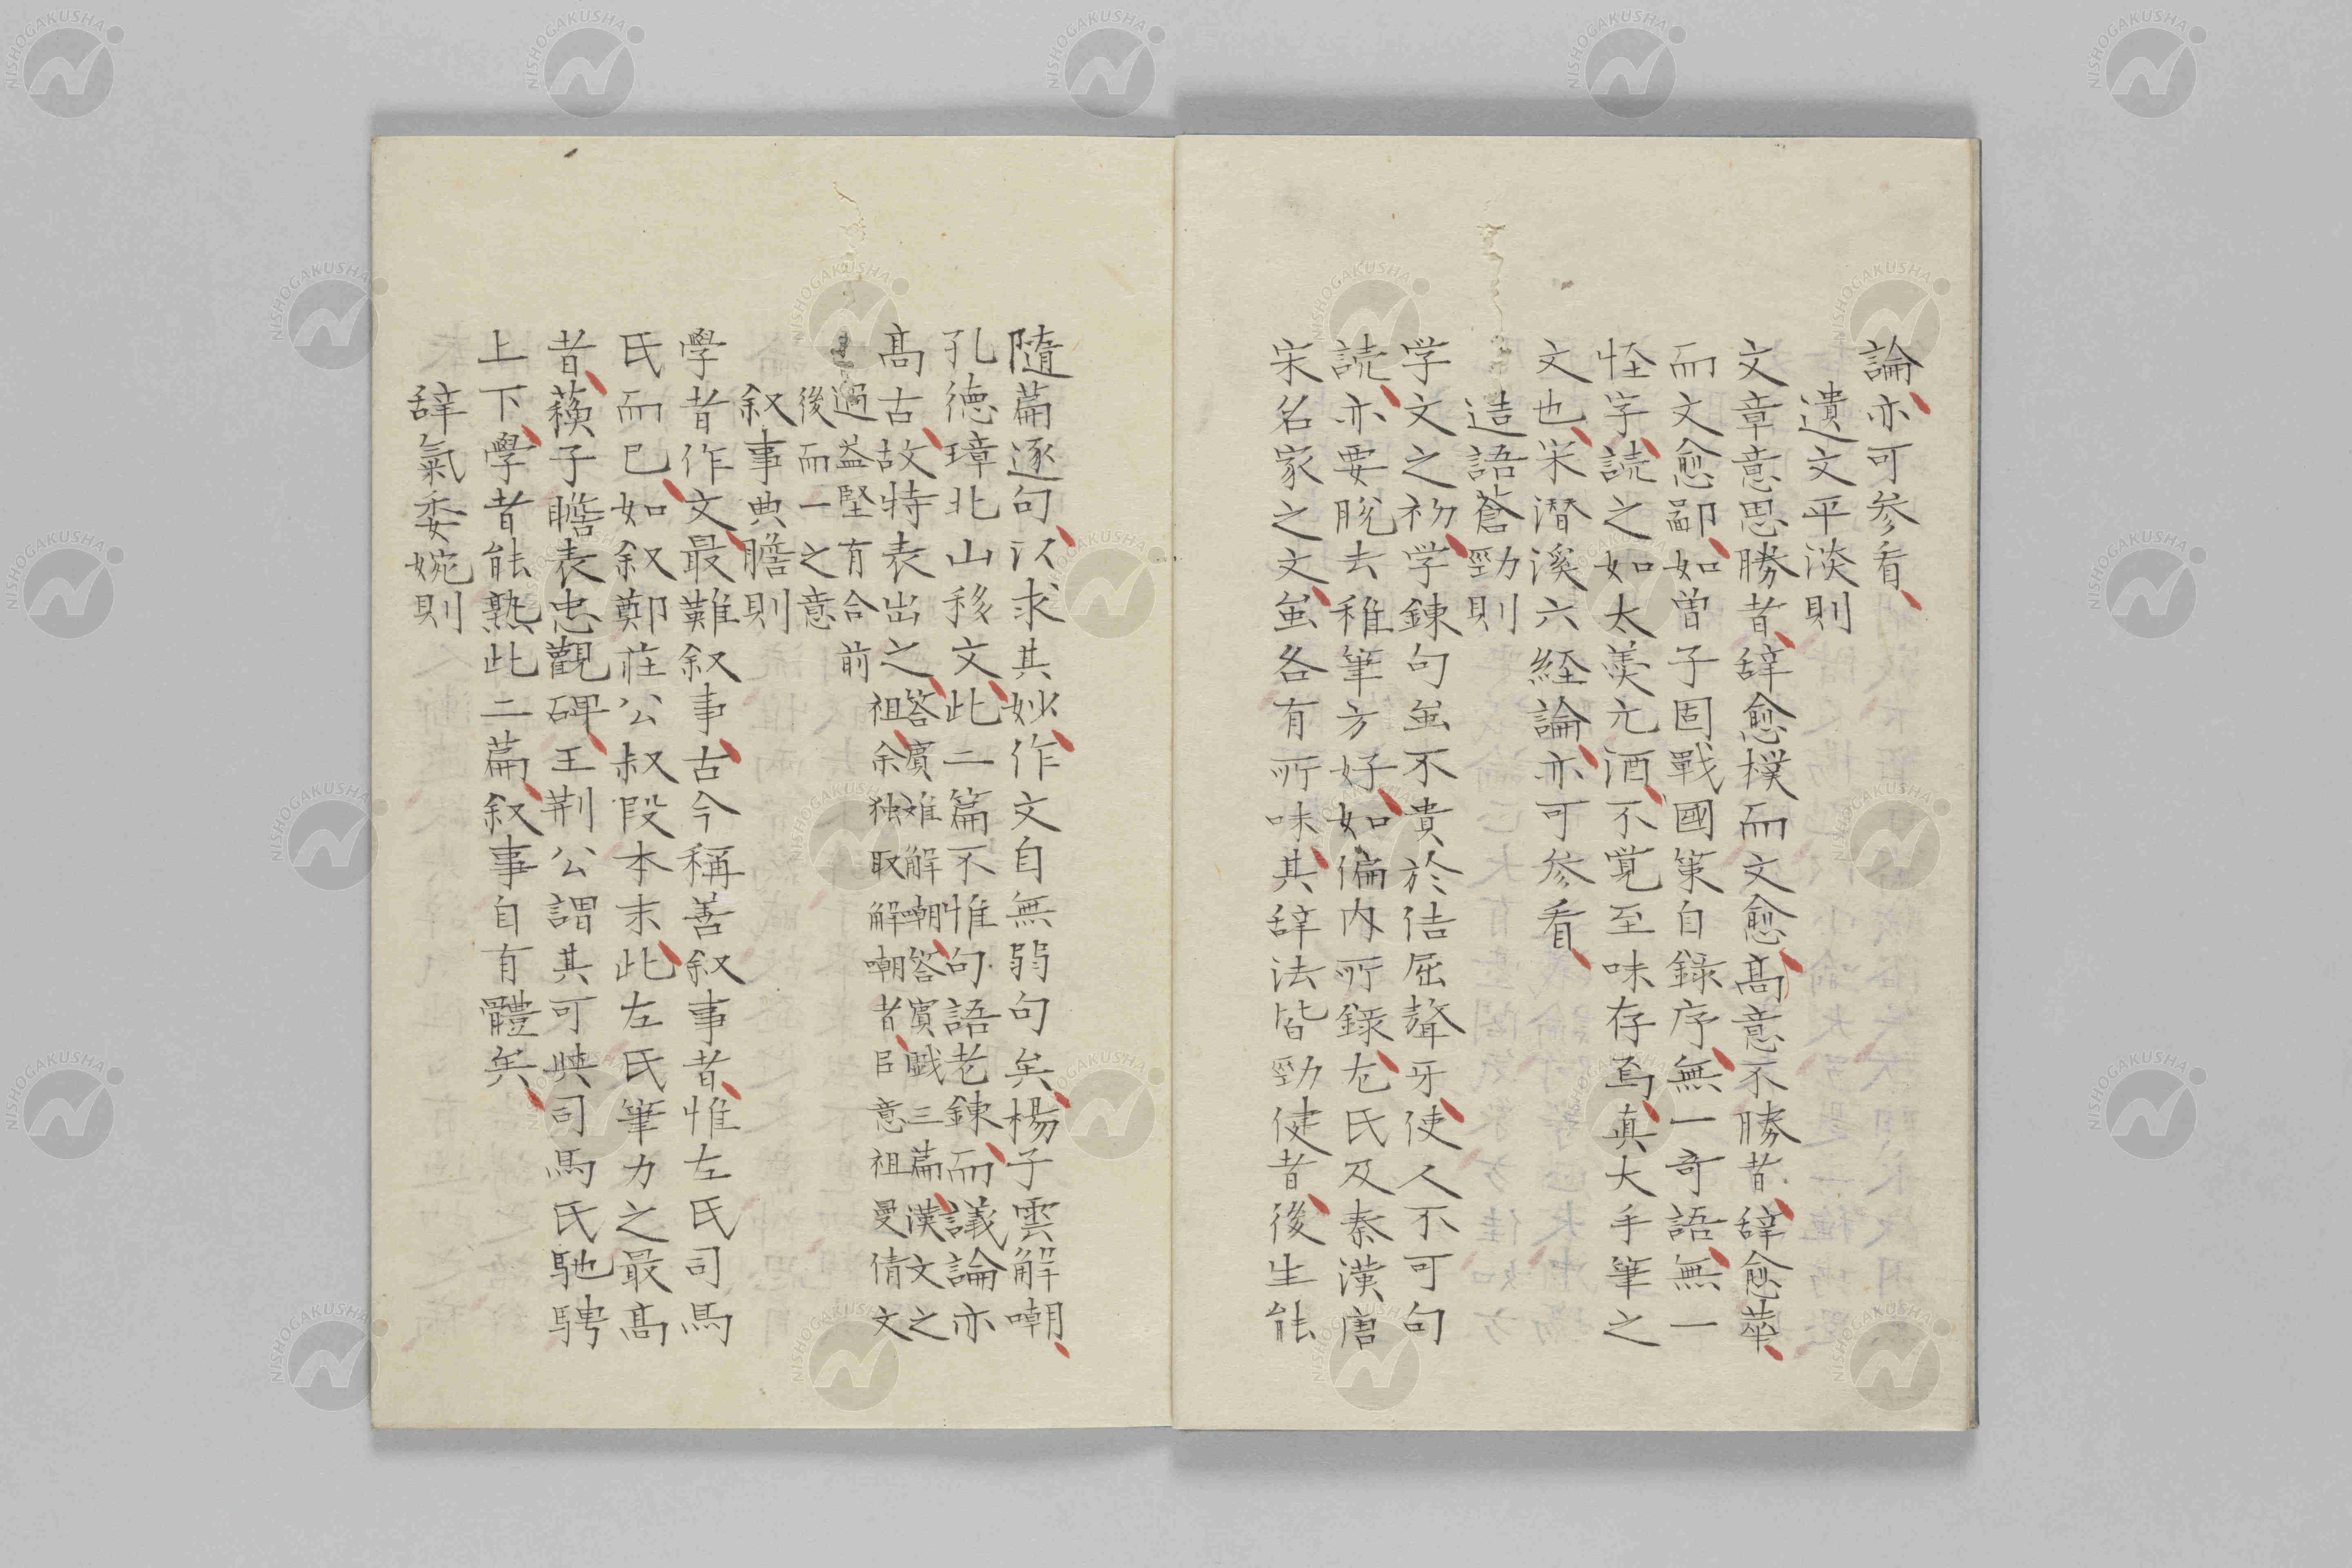 論亦可参看
遺文平淡則
文章意思勝者辞愈樸而文愈髙意不勝者辞愈華
而文愈鄙如曽子固戰國策目録序無一竒語無一
怪字読之如太羮元酒不覚至味存焉真大手筆之
文也宋潜溪六経論亦可参看
造語蒼勁則
学文之初学錬句虽不貴於佶屈聱牙使人不可句
読亦要脱去稚筆方好如偏内所録左氏及秦漢唐
宋名家之文虽各有所味其辞法皆勁健者後生能
隨篇逐句以求其妙作文自無弱句矣楊子雲解嘲
孔徳璋北山移文此二篇不惟句語老錬而議論亦
髙古故特表出之答賓难解嘲答賓戯三篇漢文之
祖余独取解嘲者㠯意祖曼倩文
過益堅有合前
後而一之意
叙事典贍則
學者作文最難叙事古今稱善叙事者惟左氏司馬
氏而已如叙鄭莊公叔段本末此左氏筆力之最髙
者蘓子瞻表忠觀碑王荆公謂其可與司馬氏馳騁
上下學者能熟此二篇叙事自有體矣
辞氣委婉則
NISHOGAKUSHA